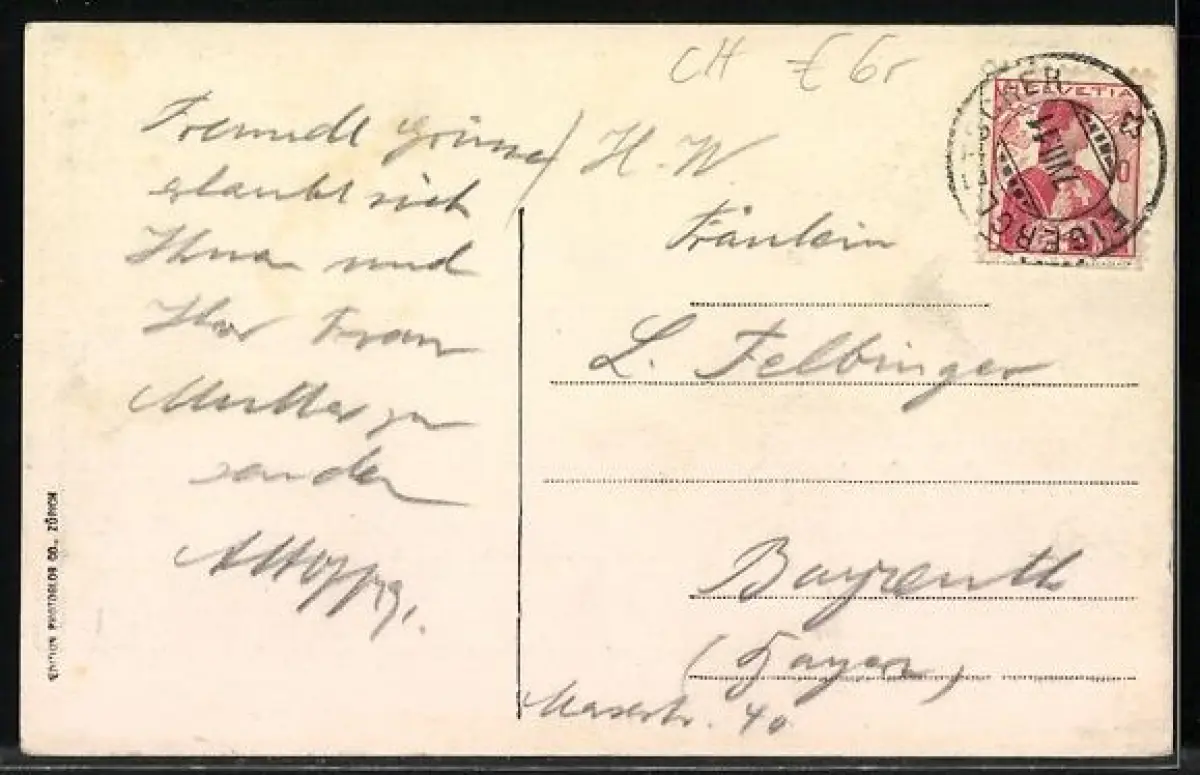 CH € 6r
HELVETIA
EIGERGLETSCHER
Freundl Grüsse / H. W.
erlaubt sich
Ihnen und
Ihrer Frau
Mutter zu
senden
Fräulein
L. Felbinger
Bayreuth
(Bayern)
40
EDITION PHOTOGLOB CO., ZÜRICH